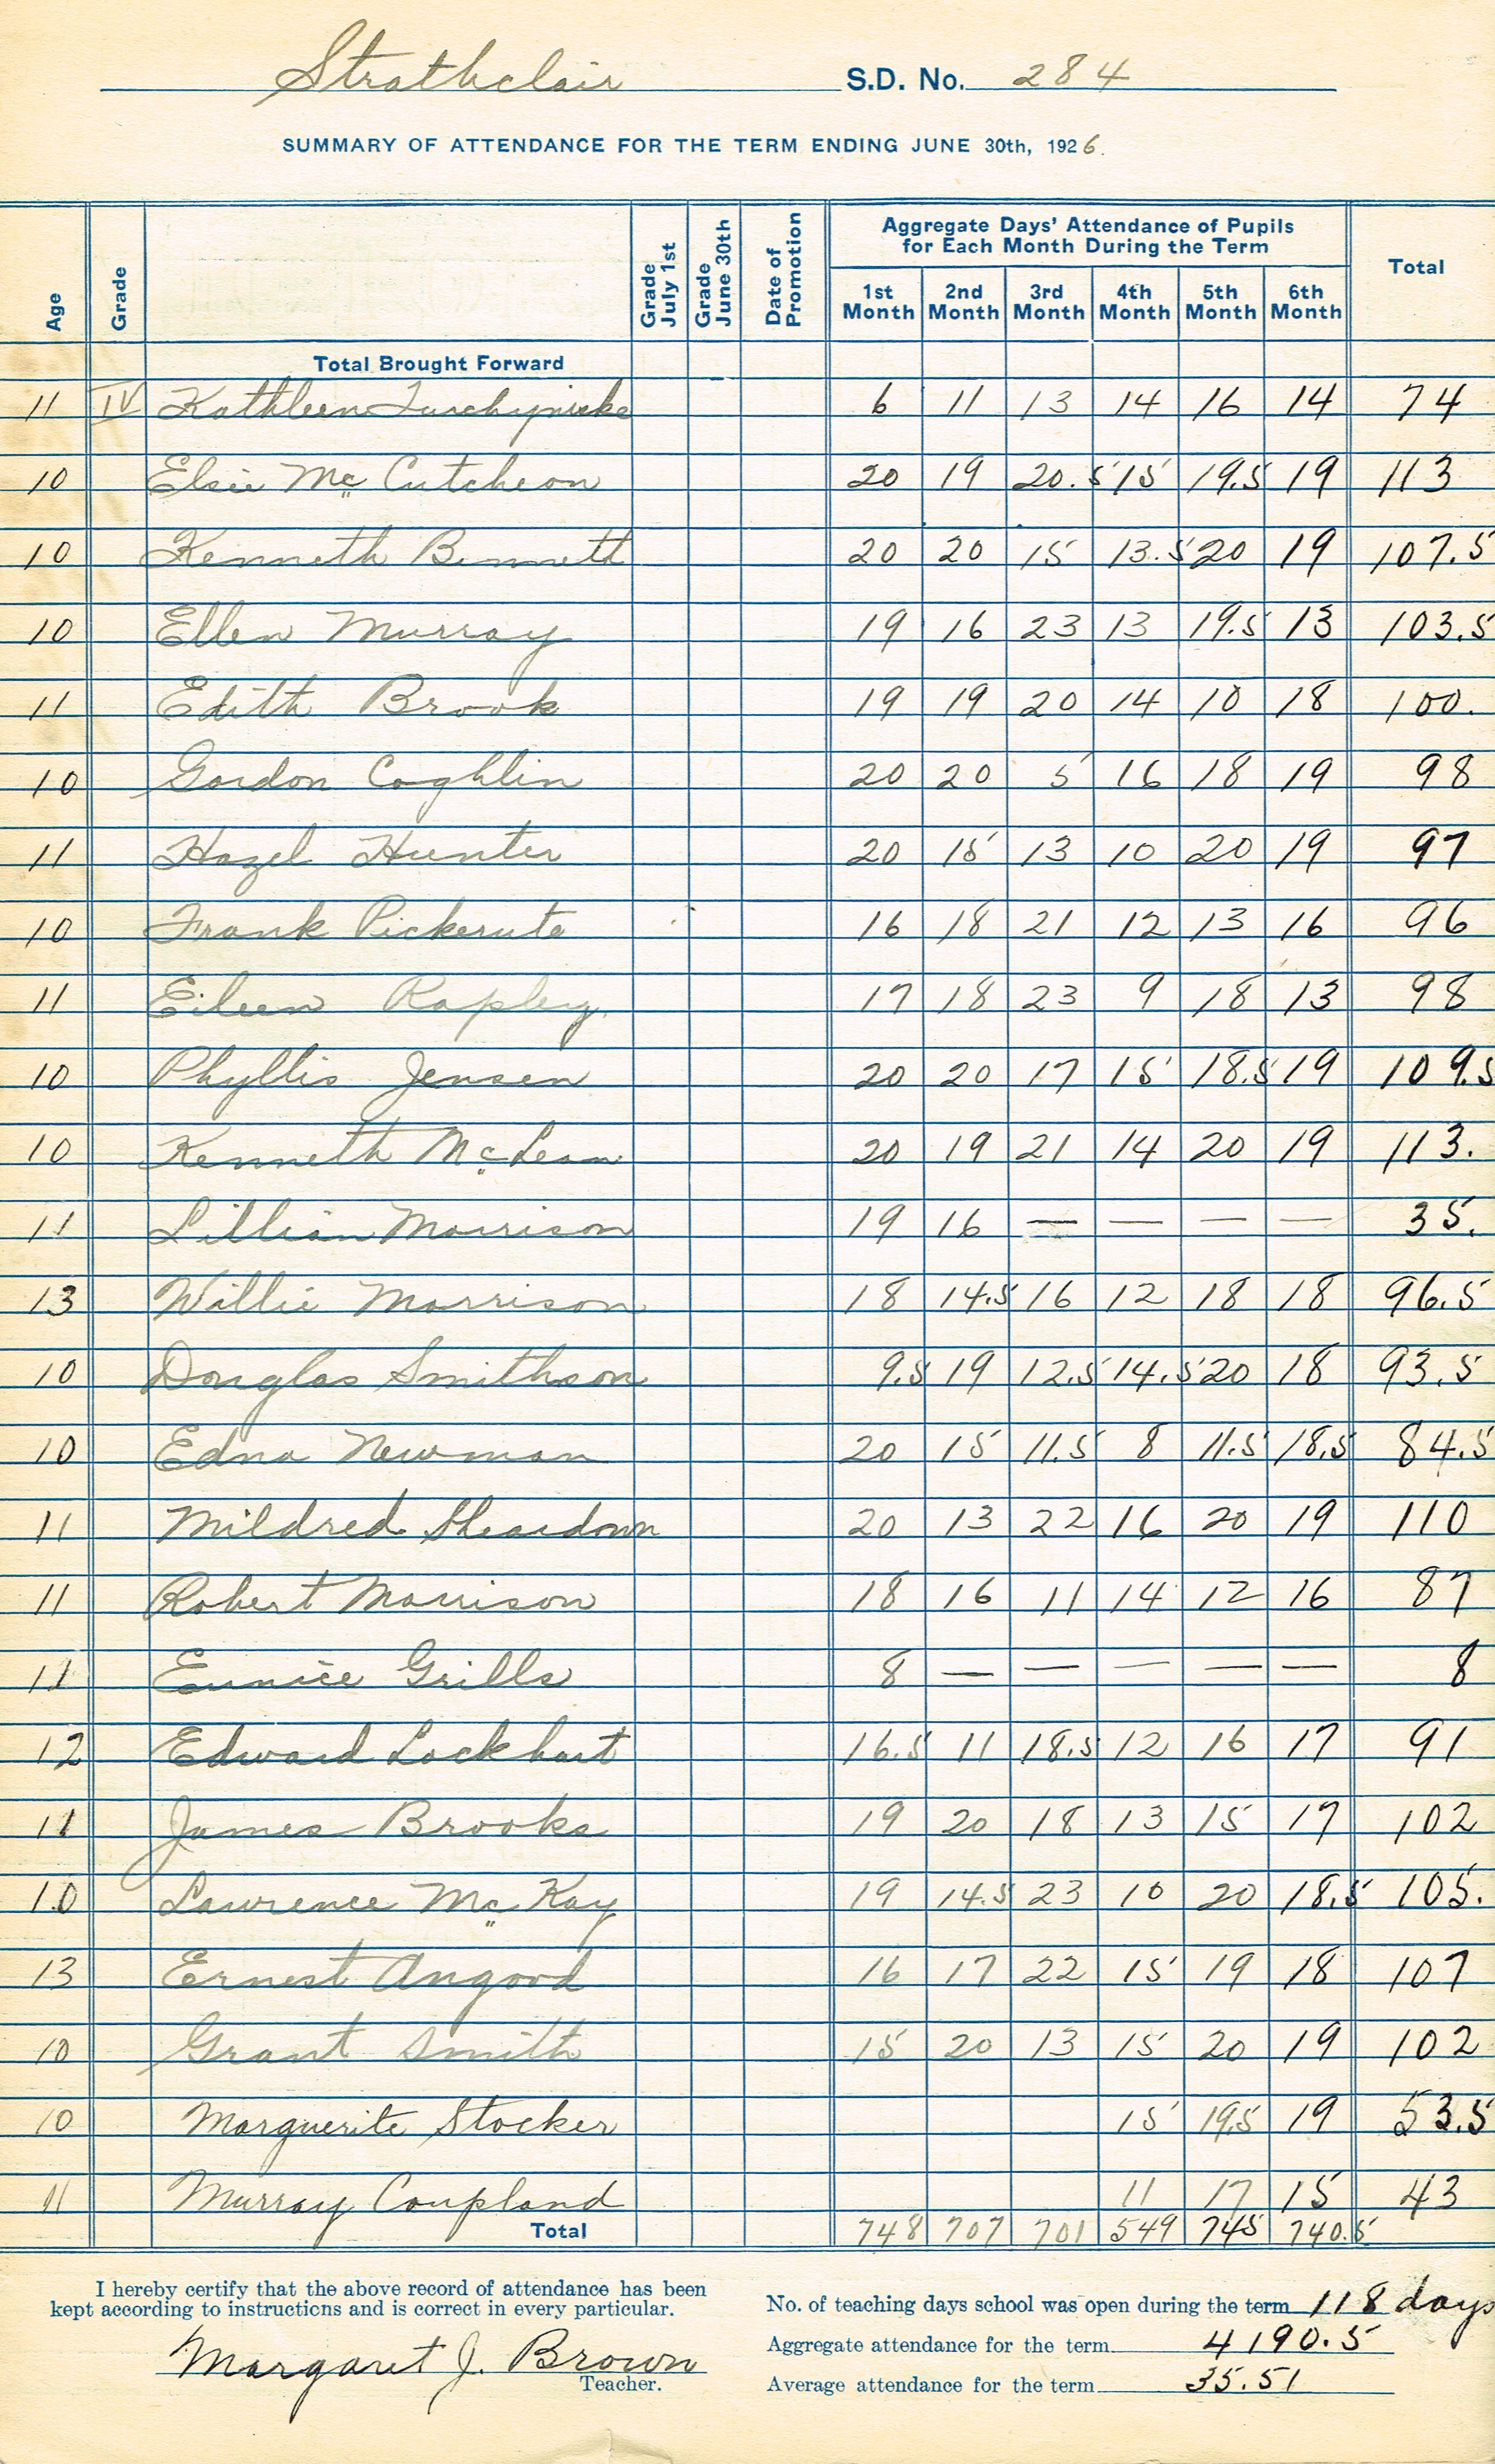 Strathclair S.D. No. 284
SUMMARY OF ATTENDANCE FOR THE TERM ENDING JUNE 30th, 1926.
Age Grade Grade July 1st Grade June 30th Date of Promotion Aggregate Days' Attendance of Pupils for Each Month During the Term Total
1st Month 2nd Month 3rd Month 4th Month 5th Month 6th Month
Total Brought Forward
11 IV Kathleen 6 11 13 14 16 14 74
10 Elsie Mc Cutcheon 20 19 20.5 15 19.5 19 113
10 Kenneth Bennett 20 20 15 13.5 20 19 107.5
10 Ellen Murray 19 16 23 13 19.5 13 103.5
11 Edith Brook 19 19 20 14 10 18 100.
10 Gordon Coghlin 20 20 5 16 18 19 98
11 Hazel Hunter 20 15 13 10 20 19 97
10 Frank 16 18 21 12 13 16 96
11 Eileen Rapley 17 18 23 9 18 13 98
10 Phyllis Jensen 20 20 17 15 18.5 19 109.5
10 Kenneth McLean 20 19 21 14 20 19 113.
11 Lillian Morrison 19 16 — — — — 35.
13 Willie Morrison 18 14.5 16 12 18 18 96.5
10 Douglas Smithson 9.5 19 12.5 14.5 20 18 93.5
10 Edna Newman 20 15 11.5 8 11.5 18.5 84.5
11 Mildred Sheardown 20 13 22 16 20 19 110
11 Robert Morrison 18 16 11 14 12 16 87
11 Eunice Grills 8 — — — — — 8
12 Edward Lockhart 16.5 11 18.5 12 16 17 91
11 James Brooks 19 20 18 13 15 17 102
10 Lawrence Mc Kay 19 14.5 23 10 20 18.5 105.
13 Ernest Angood 16 17 22 15 19 18 107
10 Grant Smith 15 20 13 15 20 19 102
10 Marguerite Stocker 15 19.5 19 53.5
11 Murray Coupland 11 17 15 43
Total 748 707 701 549 745 740.5
I hereby certify that the above record of attendance has been
kept according to instructions and is correct in every particular.
Margaret J. Brown
Teacher.
No. of teaching days school was open during the term 118 days
Aggregate attendance for the term 4190.5
Average attendance for the term 35.51